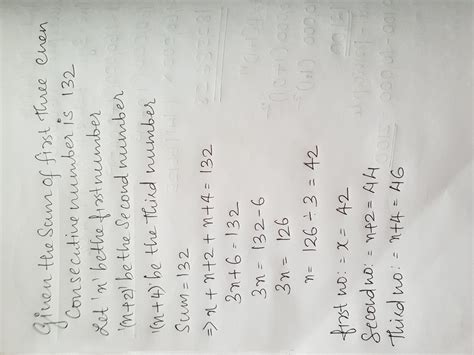 Given the Sum of first three even
Consecutive number is 132
Let 'n' be the first number
'(n+2)' be the Second number
'(n+4)' be the Third number
Sum = 132
⇒ n + n+2 + n+4 = 132
3n+6 = 132
3n = 132-6
3n = 126
n = 126 ÷ 3 = 42
first no: = x = 42
Second no: = n+2 = 44
Third no: = n+4 = 46